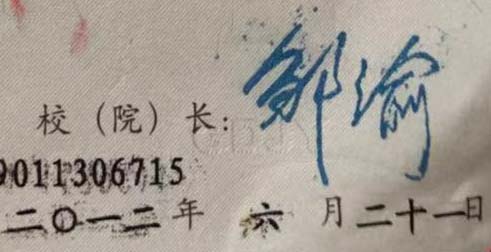 校（院）长：邹渝
9011306715
二〇一二年 六 月二十一日